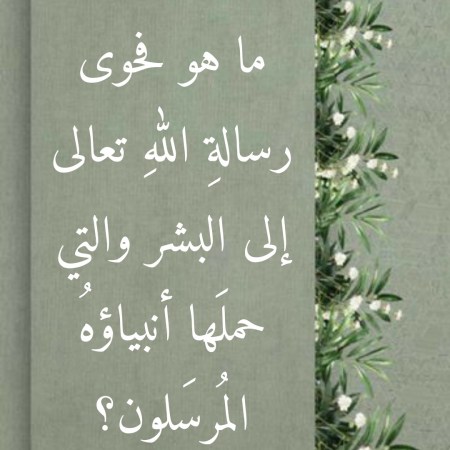 ما هو فحوى
رسالةِ اللهِ تعالى
إلى البشر والتي
حملَها أنبياؤهُ
المُرسَلون؟